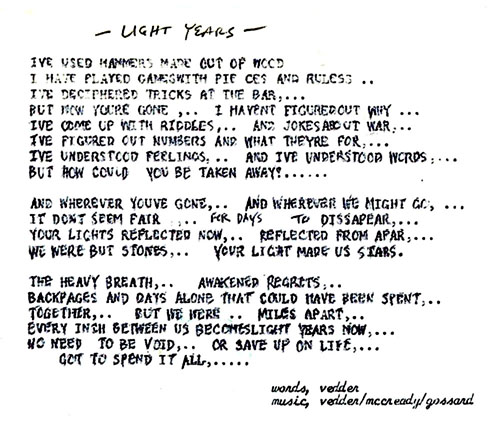 - LIGHT YEARS -
IVE USED HAMMERS MADE OUT OF WOOD
I HAVE PLAYED GAMESWITH PIE CES AND RULESS ..
I'VE DECIPHERED TRICKS AT THE BAR,...
BUT NOW YOURE GONE ,.. I HAVENT FIGUREDOUT WHY ...
IVE COME UP WITH RIDDLES,.. AND JOKESABOUT WAR,...
IVE FIGURED OUT NUMBERS AND WHAT THEYRE FOR,...
IVE UNDERSTOOD FEELINGS,.. AND IVE UNDERSTOOD WORDS,...
BUT HOW COULD YOU BE TAKEN AWAY?......
AND WHEREVER YOUVE GONE,.. AND WHEREVER WE MIGHT GO, ...
IT DONT SEEM FAIR ,.. FOR DAYS TO DISSAPEAR,...
YOUR LIGHTS REFLECTED NOW,.. REFLECTED FROM AFAR,...
WE WERE BUT STONES,.. YOUR LIGHT MADE US STARS.
THE HEAVY BREATH,.. AWAKENED REGRETS,..
BACKPAGES AND DAYS ALONE THAT COULD HAVE BEEN SPENT,..
TOGETHER,.. BUT WE WERE .. MILES APART,..
EVERY INCH BETWEEN US BECOMESLIGHT YEARS NOW,...
NO NEED TO BE VOID,.. OR SAVE UP ON LIFE,...
GOT TO SPEND IT ALL,.....
words, vedder
music, vedder/mccready/gossard